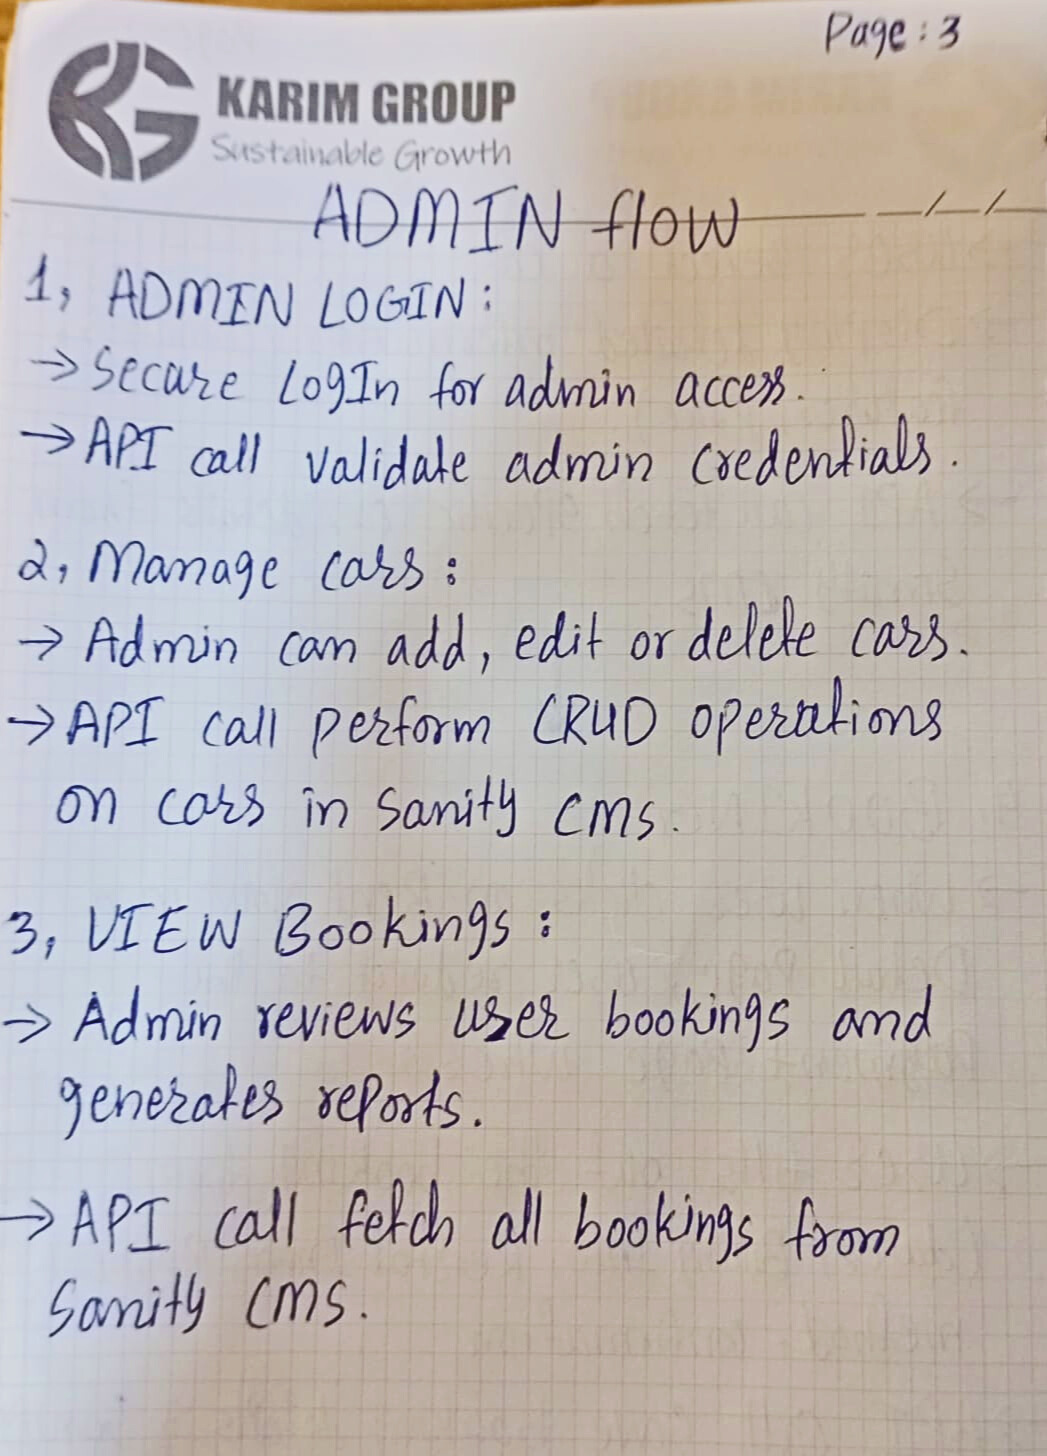 Page : 3
KG KARIM GROUP
Sustainable Growth
ADMIN flow
1, ADMIN LOGIN :
→ Secure LogIn for admin access.
→ API call validate admin credentials.
2, Manage cars :
→ Admin can add, edit or delete cars.
→ API call perform CRUD operations
on cars in Sanity CMS.
3, VIEW Bookings :
→ Admin reviews user bookings and
generates reports.
→ API call fetch all bookings from
Sanity CMS.